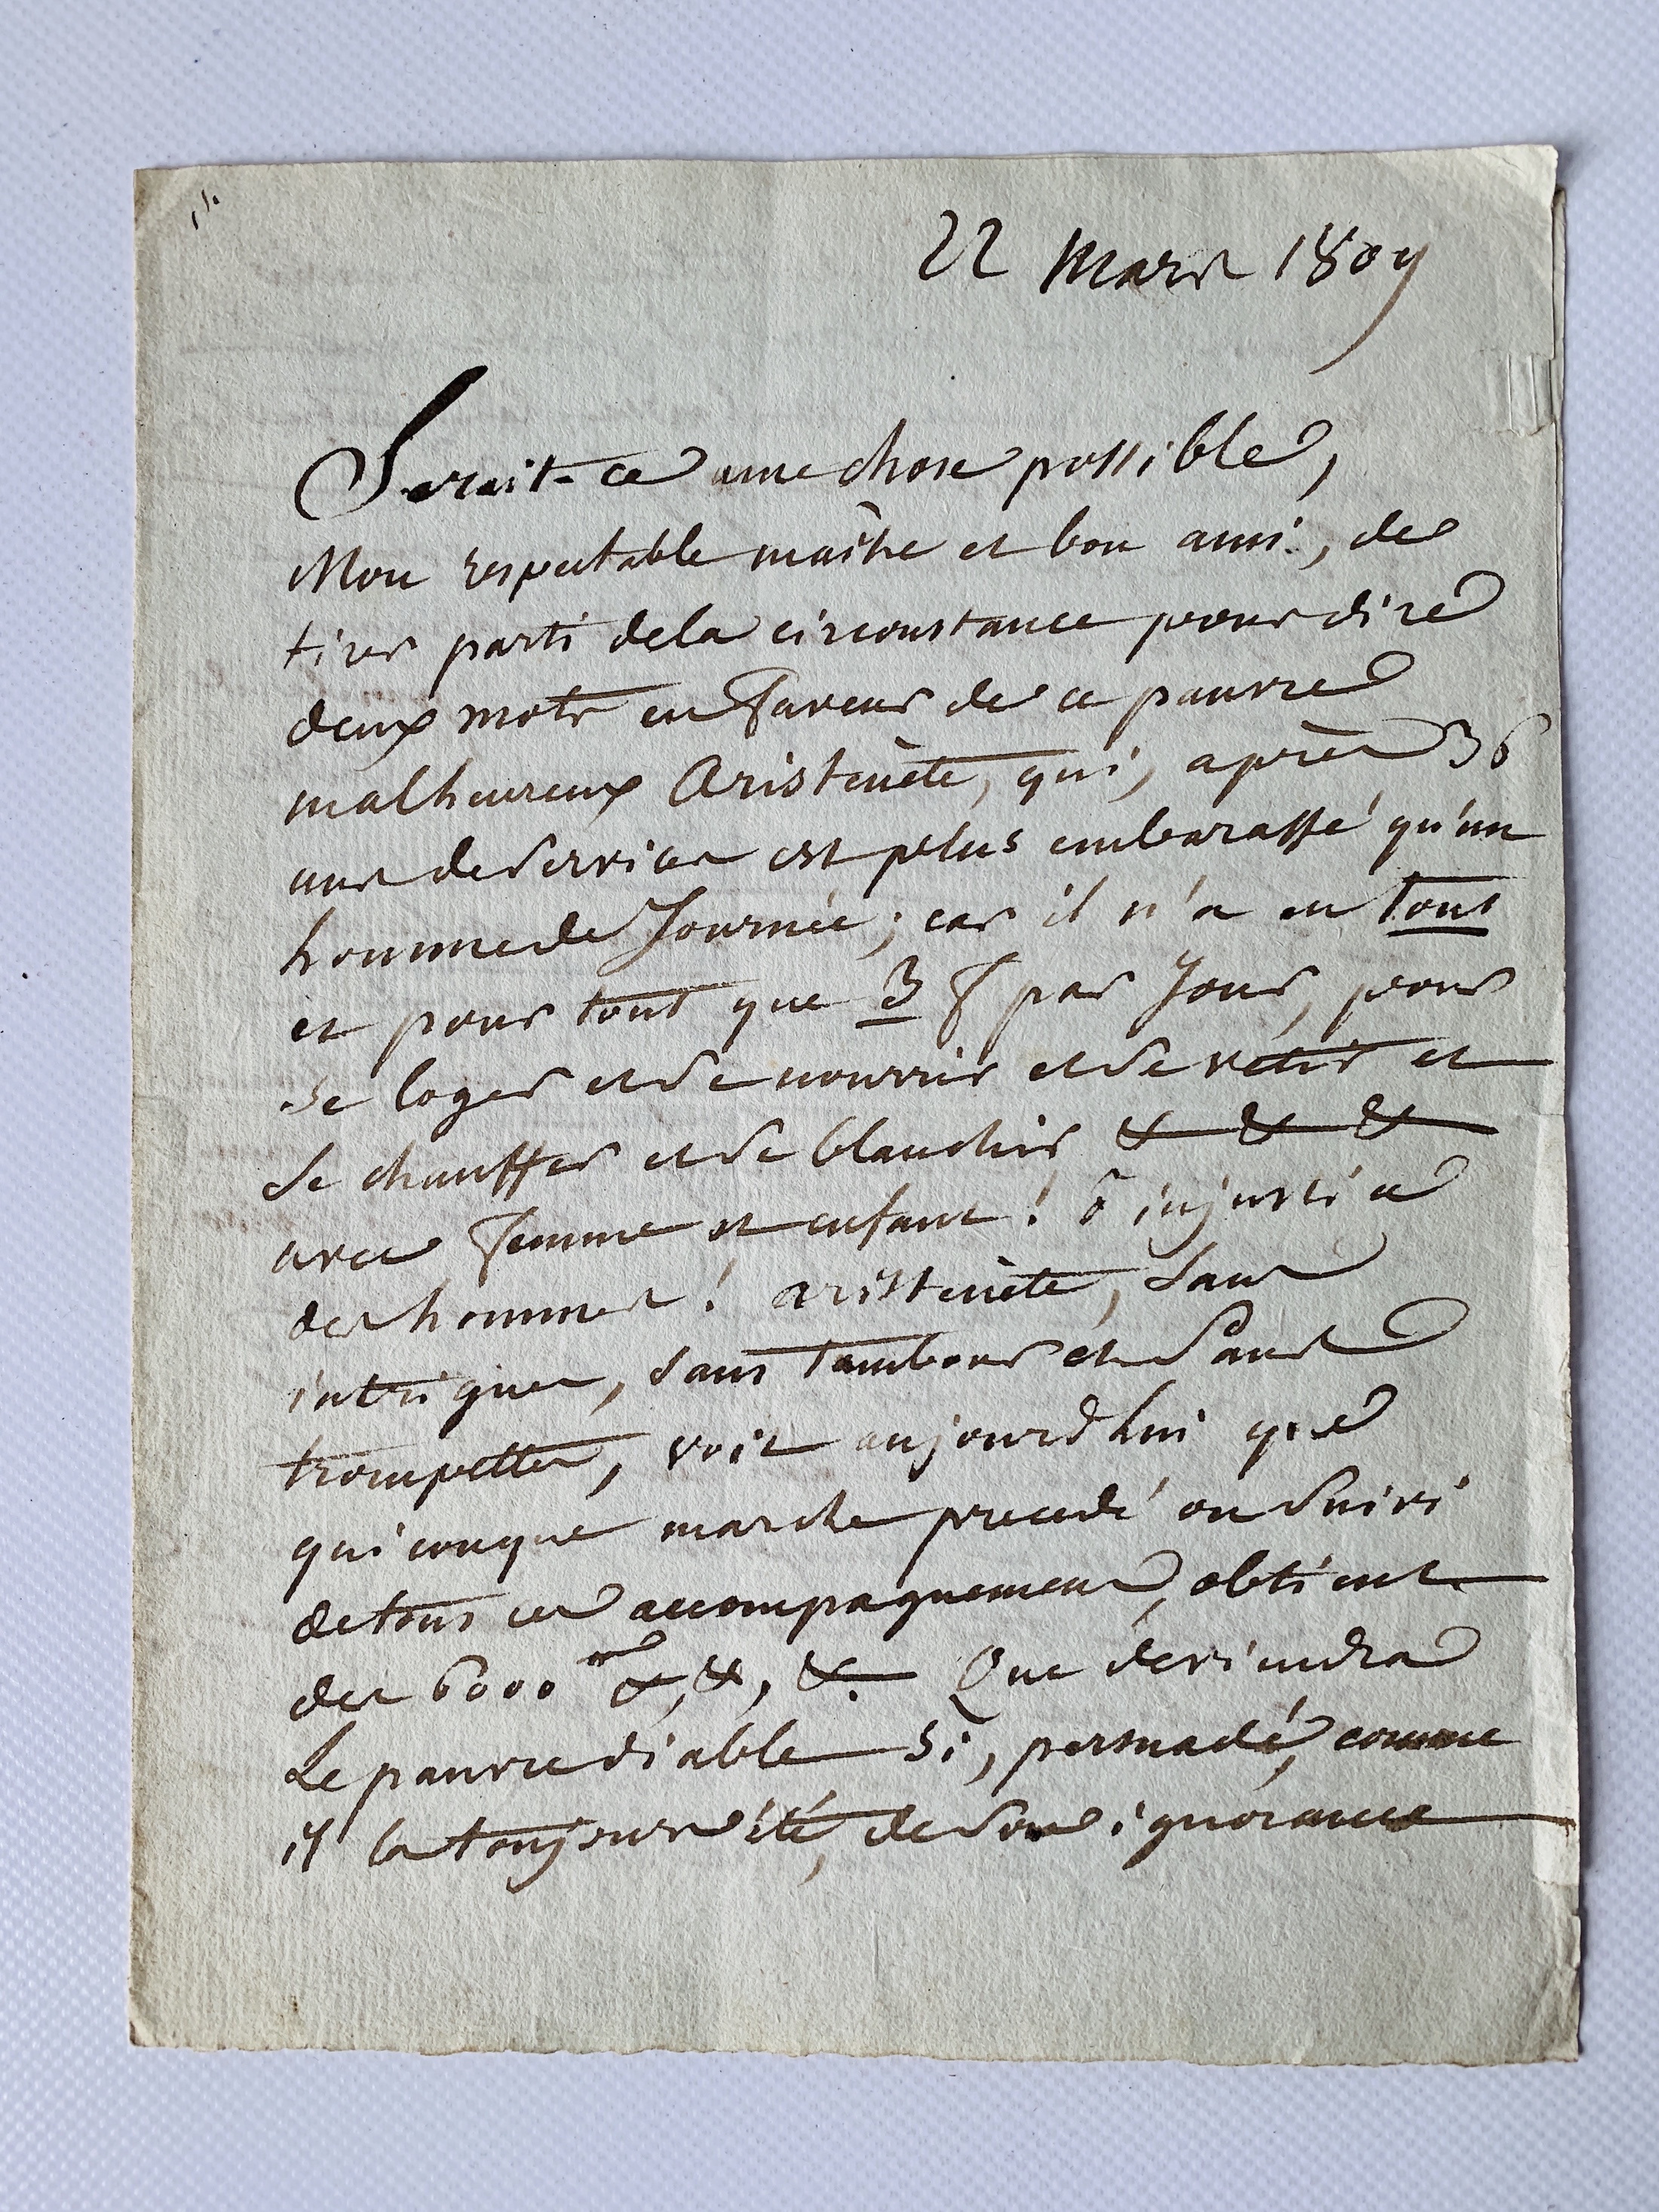 22 mars 1809
Serait-ce une chose possible,
Mon respectable maître et bon ami, de
tirer parti de la circonstance pour dire
deux mots en faveur de ce pauvre
malheureux Aristenète, qui, après 36
ans de services est plus embarassé qu'un
homme de Journée; car il n'a en tout
et pour tout que 3 f par Jour, pour
se loger et se nourrir et se vétir et
se chauffer et se blanchir & & &
avec femme et enfans! ô injustice
des hommes! aristenète, sans
intrigues, sans tambour et sans
trompettes, voit aujourd'hui que
quiconque marche precedé ou suivi
de tous ces accompagnemens, obtient
des 6000 &, &, &. Que deviendra
Le pauvre diable si, persuadé, comme
il la toujours été, de son ignorance